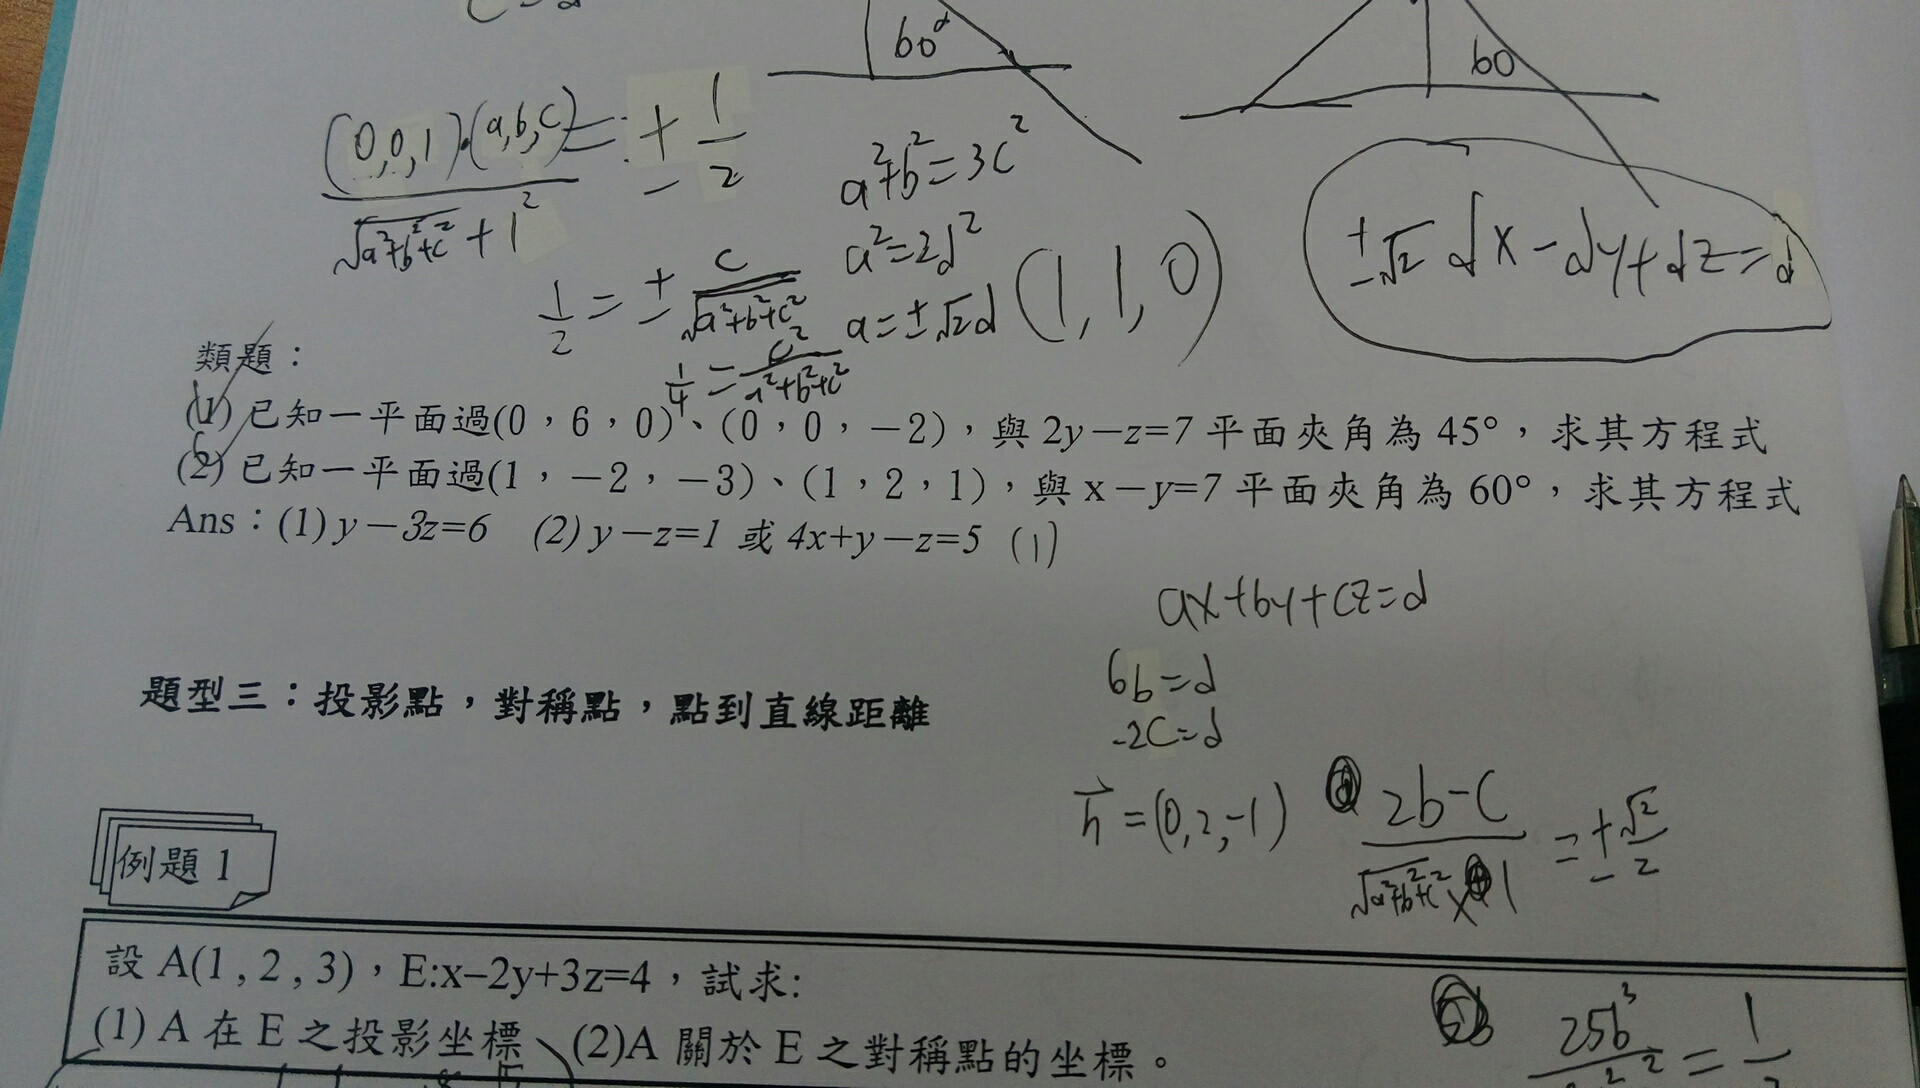 60°
60
(0,0,1)·(a,b,c) = ± 1/2
√a²+b²+c² + 1²
a²+b²=3c²
a²=2d²
a=±√2d
(1,1,0)
±√2 dx-dy+dz=d
1/2 = ± c/√a²+b²+c²
1/4 = c²/a²+b²+c²
類題：
(1) 已知一平面過(0，6，0)、(0，0，−2)，與 2y−z=7 平面夾角為 45°，求其方程式
(2) 已知一平面過(1，−2，−3)、(1，2，1)，與 x−y=7 平面夾角為 60°，求其方程式
Ans：(1) y−3z=6 (2) y−z=1 或 4x+y−z=5 (1)
ax+by+cz=d
6b=d
-2c=d
題型三：投影點，對稱點，點到直線距離
n=(0,2,-1)
2b-c/√a²+b²+c² × 1 = ± √2/2
例題 1
設 A(1 , 2 , 3)，E:x–2y+3z=4，試求:
(1) A 在 E 之投影坐標 (2)A 關於 E 之對稱點的坐標。